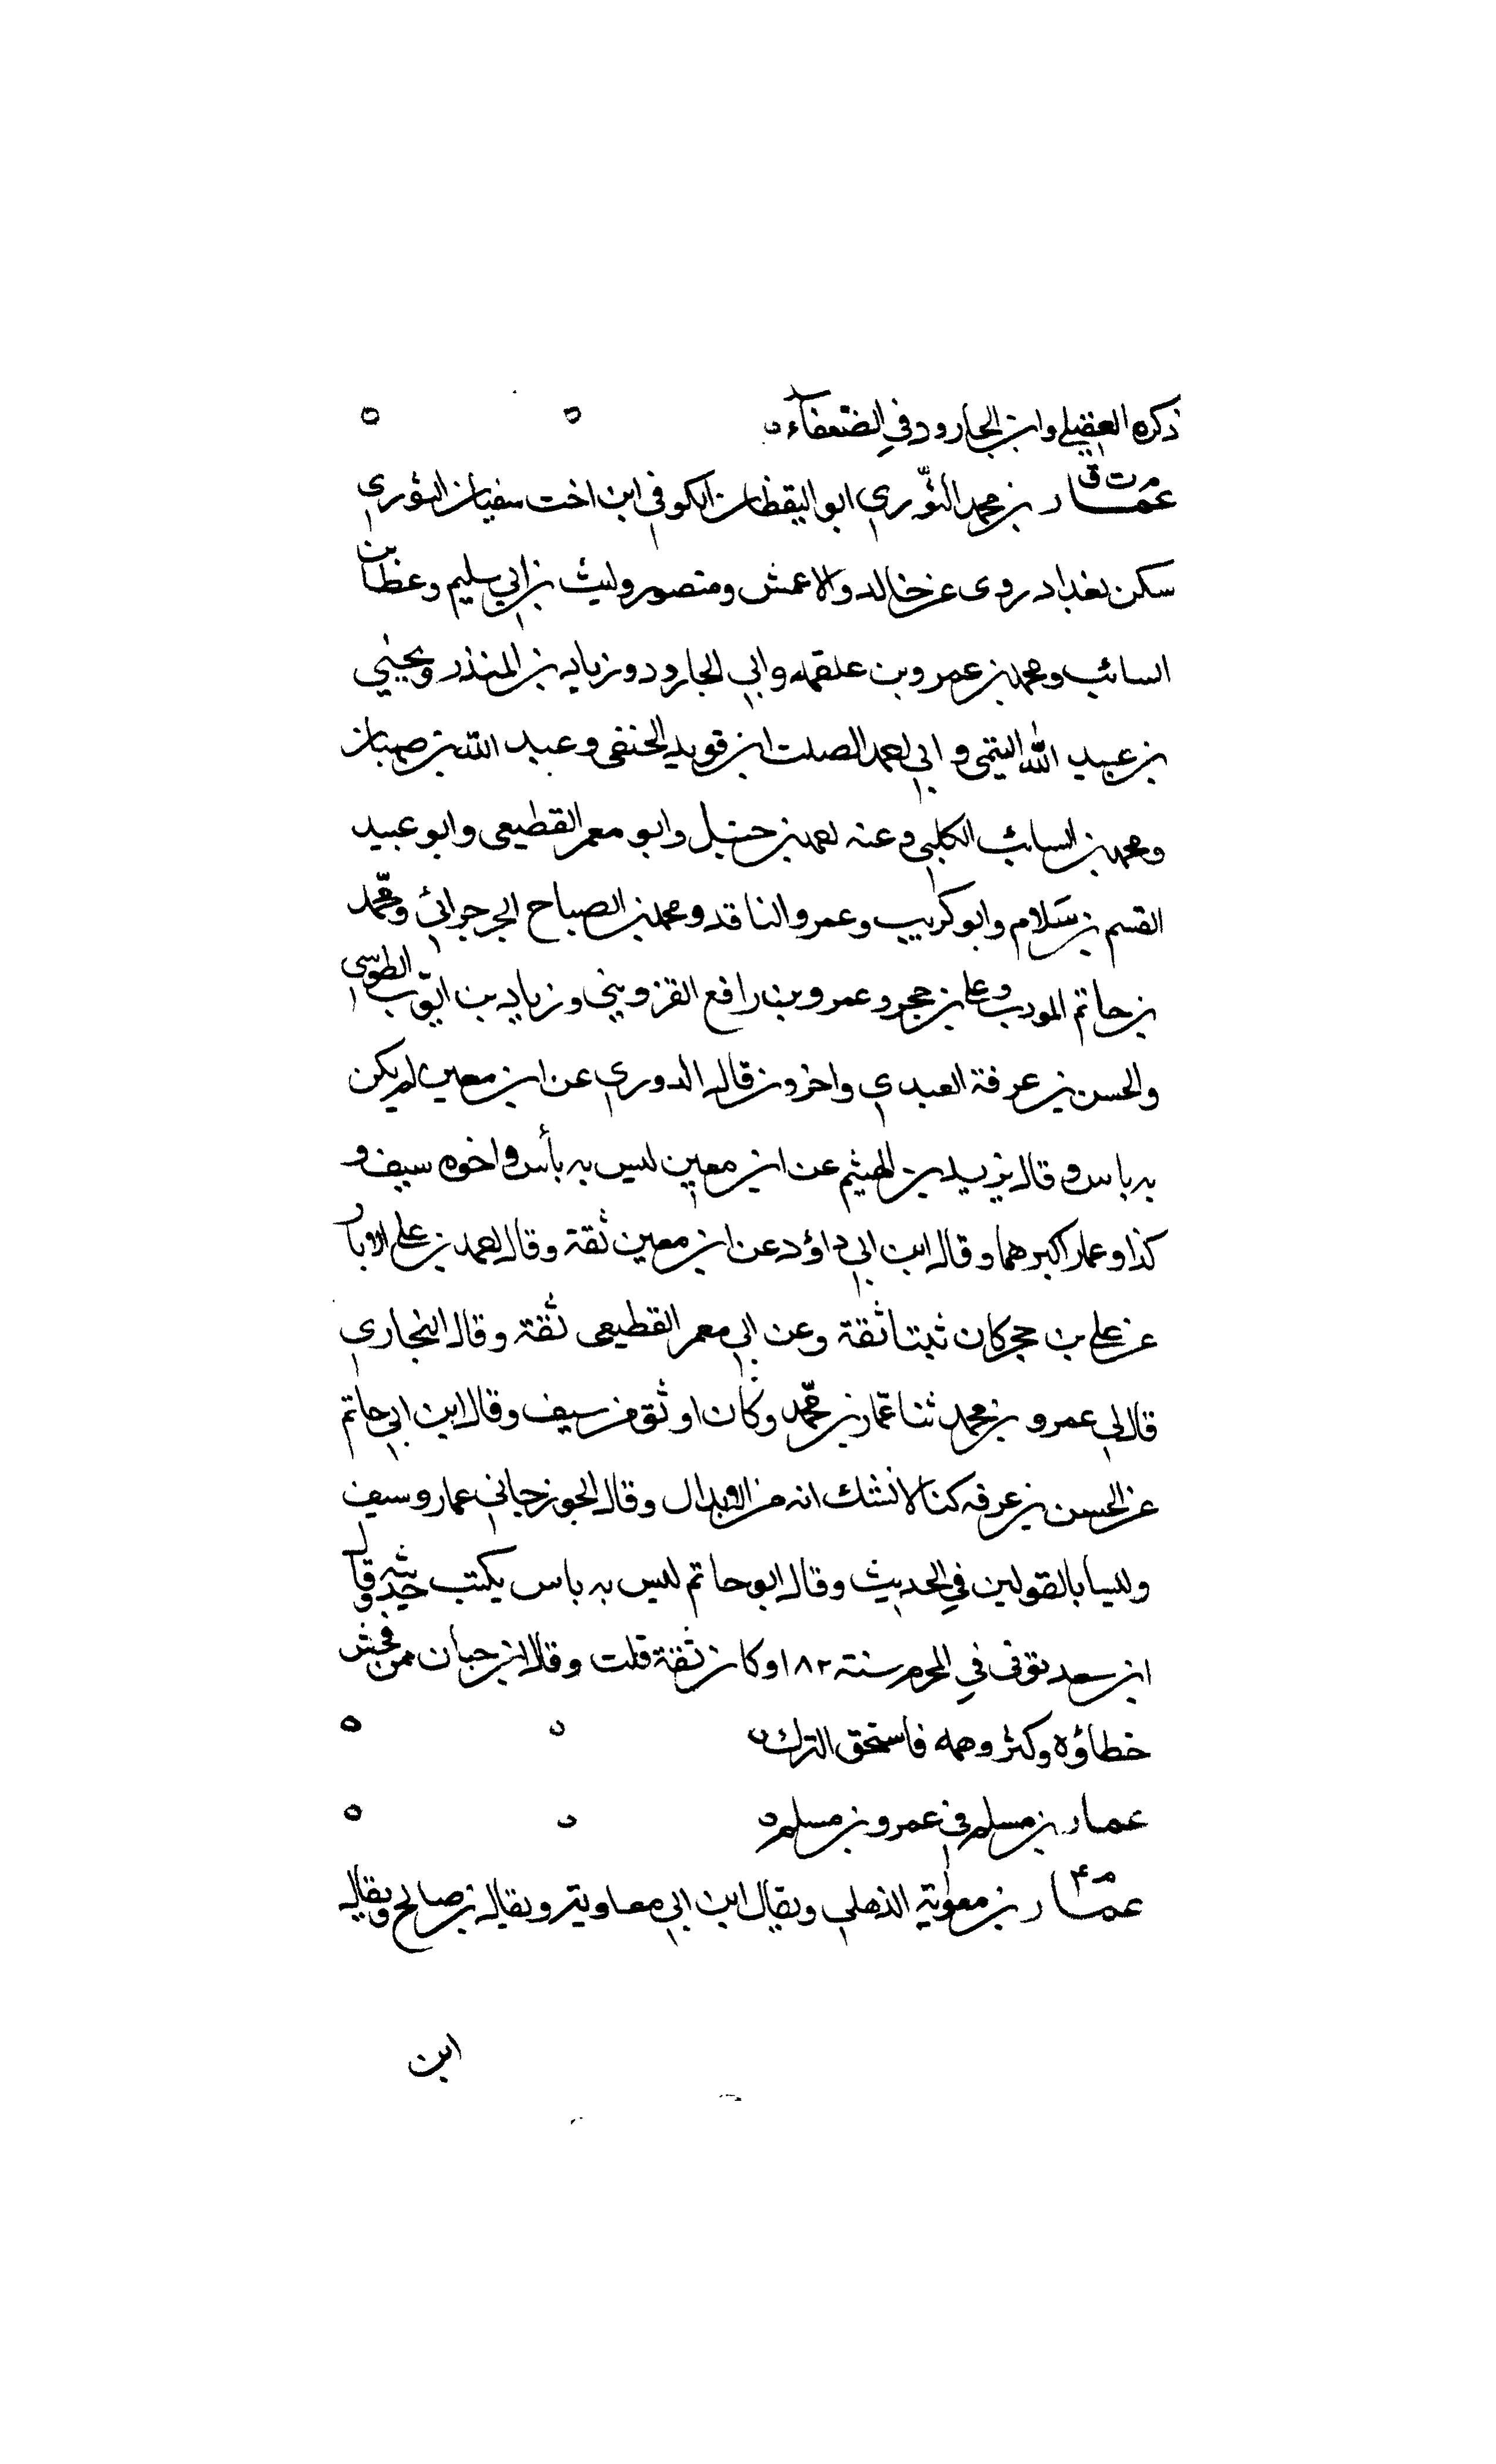 ذكره العقيلي وابن الجارود في الضعفاء
م ت ق
عمار بن محمد الثوري ابو اليقظان الكوفي ابن اخت سفيان الثوري
سكن بغداد روى عن خالد والاعمش ومنصور وليث بن ابي سليم وعطا بن
السائب ومحمد بن عمرو بن علقمه وابي الجارود وزياد بن المنذر ويحيي
بن عبيد الله التيمي و ابي احمد الصلت ابن قويد الحنفي وعبد الله بن صهبان
ومحمد بن السائب الكلبي وعنه احمد بن حنبل وابو معمر القطيعي وابو عبيد
القسم بن سَلام وابو كريب وعمرو الناقد ومحمد بن الصباح الجرجرائي ومحمّد
بن حاتم المودب وعلي بن حجر وعمرو بن رافع القزويني وزياد بن ايّوب الطوسي
والحسن بن عرفة العبدي واخرون قال الدوري عن ابن معين لم يكن
به باس وقال يزيد بن الهيثم عن ابن معين ليس به بأس واخوه سيف و
كذا وعمار اكبرهما وقال ابن ابي داؤد عن ابن معين ثقة وقال احمد بن علي الابار
عن علي بن حجر كان ثبتا ثقة وعن ابي معمر القطيعي ثقة وقال البخاري
قال لي عمرو بن محمد ثنا عمّار بن محمّد وكان اوثق من سيف وقال ابن ابي حاتم
عن الحسن بن عرفه كنا لا نشك انه من الابدال وقال الجوزجاني عمار وسيف
وليسا بالقولين في الحديث وقال ابو حاتم ليس به باس يكتب حديثه وقال
ابن سعد توفى في المحرم سنة ١٨٢ وكان ثقة قلت وقال ابن حبان ممن فحش
خطاؤه وكثر وهمه فاستحق الترك
عمار بن مسلم في عمرو بن مسلم
م ۴
عمّار بن معوية الذهلي ويقال ابن ابي معاوية ويقال بن صالح ويقال
ابن